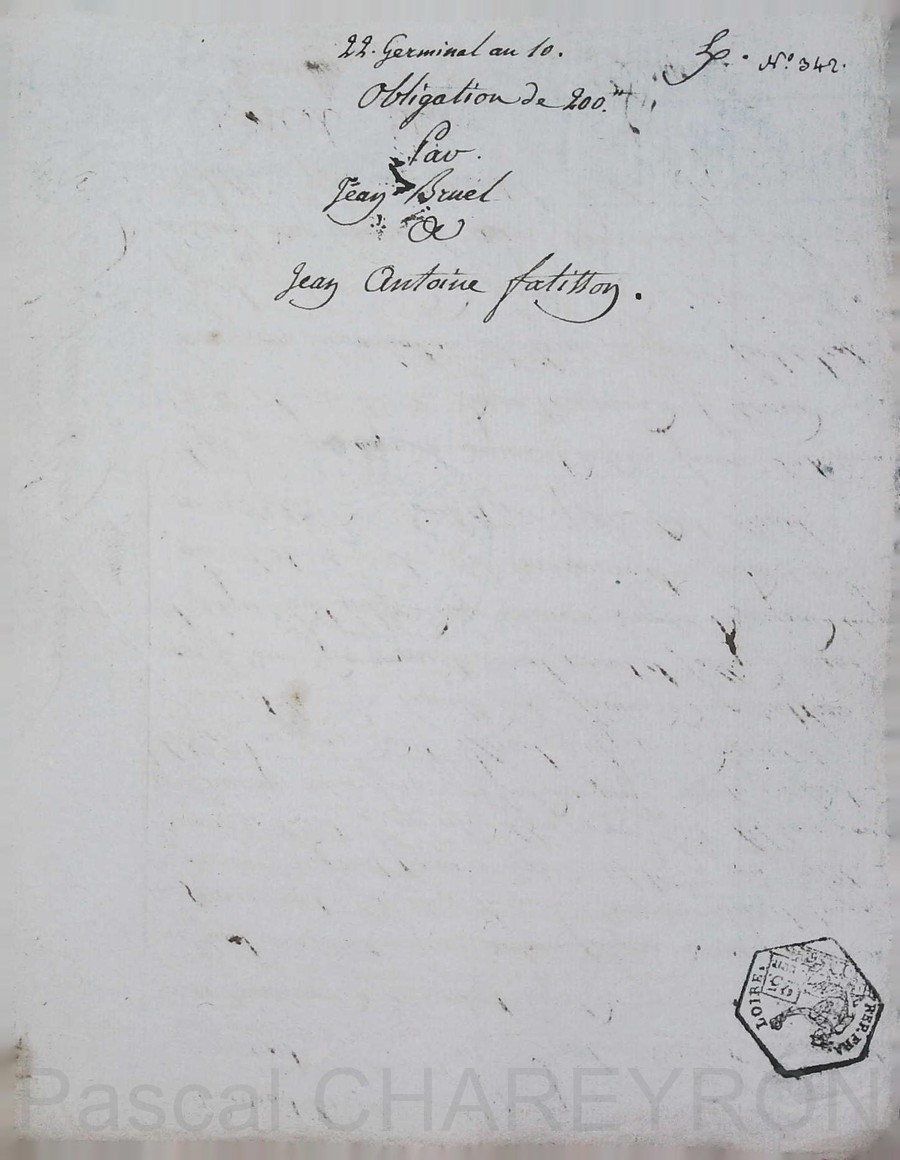 22. Germinal an 10.
N.º 342.
Obligation de 200.
Par
Jean Bruel
De
Jean Antoine fatisson.
LOIRE.
REP. FRA
Pascal CHAREYRON